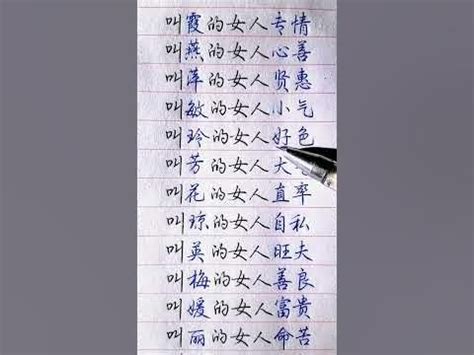 叫霞的女人专情
叫燕的女人心善
叫萍的女人贤惠
叫敏的女人小气
叫玲的女人好色
叫芳的女人大
叫花的女人直率
叫琼的女人自私
叫英的女人旺夫
叫梅的女人善良
叫媛的女人富贵
叫丽的女人命苦